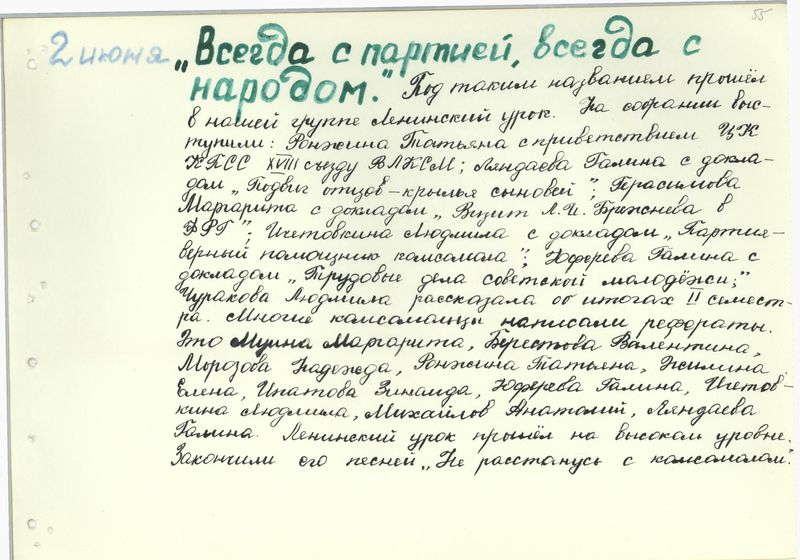 55
2 июня „Всегда с партией, всегда с
народом." Под таким названием прошёл
в нашей группе Ленинский урок. На собрании выс-
тупили: Ронжина Татьяна с приветствием ЦК
КПСС XVIII съезду ВЛКСМ; Ляндаева Галина с докла-
дом „Подвиг отцов – крылья сыновей"; Герасимова
Маргарита с докладом „Визит Л.И. Брежнева в
ФРГ"; Счетовкина Людмила с докладом „Партия-
верный помощник комсомола"; Юферева Галина с
докладом „Трудовые дела советской молодёжи;"
Чуракова Людмила рассказала об итогах II семест-
ра. Многие комсомольцы написали рефораты.
Это Мушна Маргарита, Берестова Валентина,
Морозова Надежда, Ронжина Татьяна, Жилина
Елена, Ипатова Зинаида, Юферева Галина, Счетов-
кина Людмила, Михайлов Анатолий, Ляндаева
Галина. Ленинский урок прошёл на высоком уровне.
Закончили его песней „Не расстанусь с комсомолом".